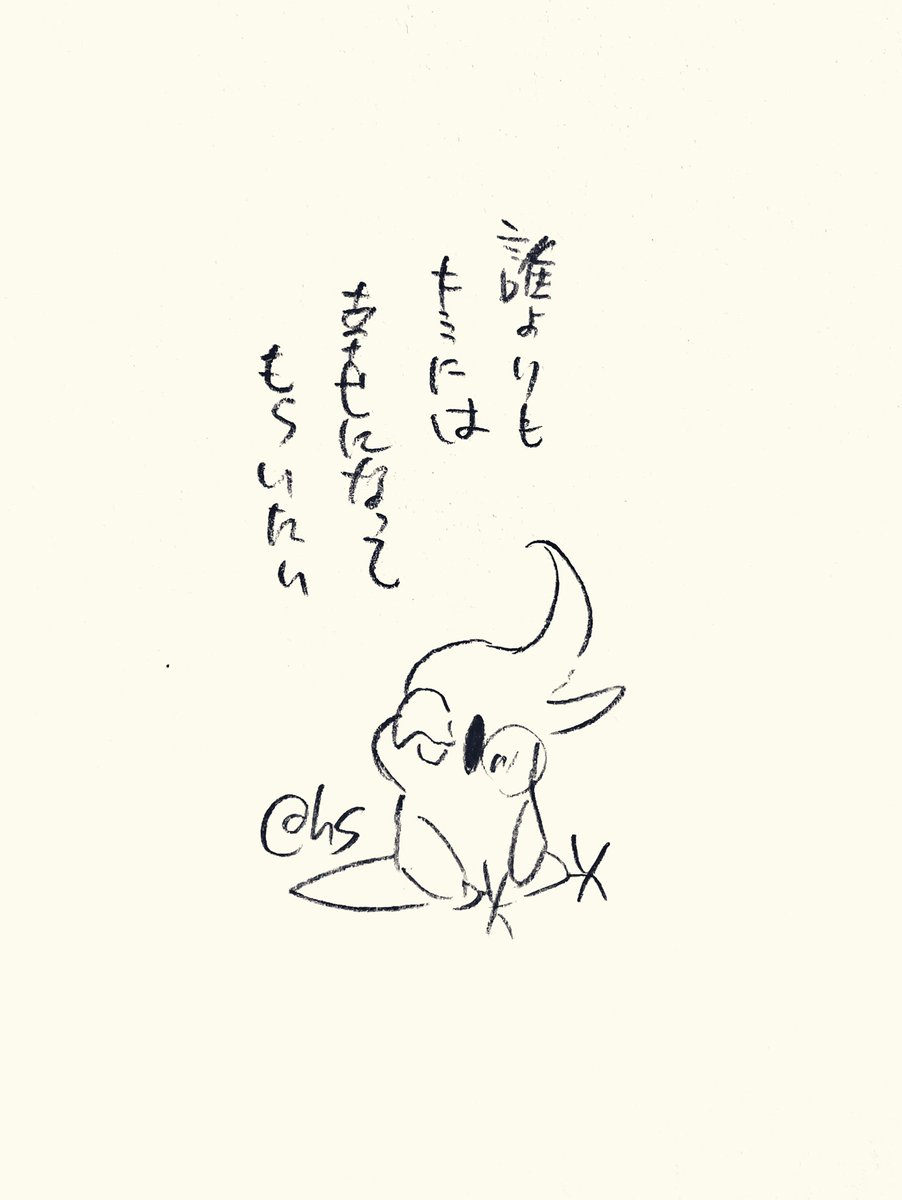 誰よりも
キミには
幸せになって
もらいたい
@hs